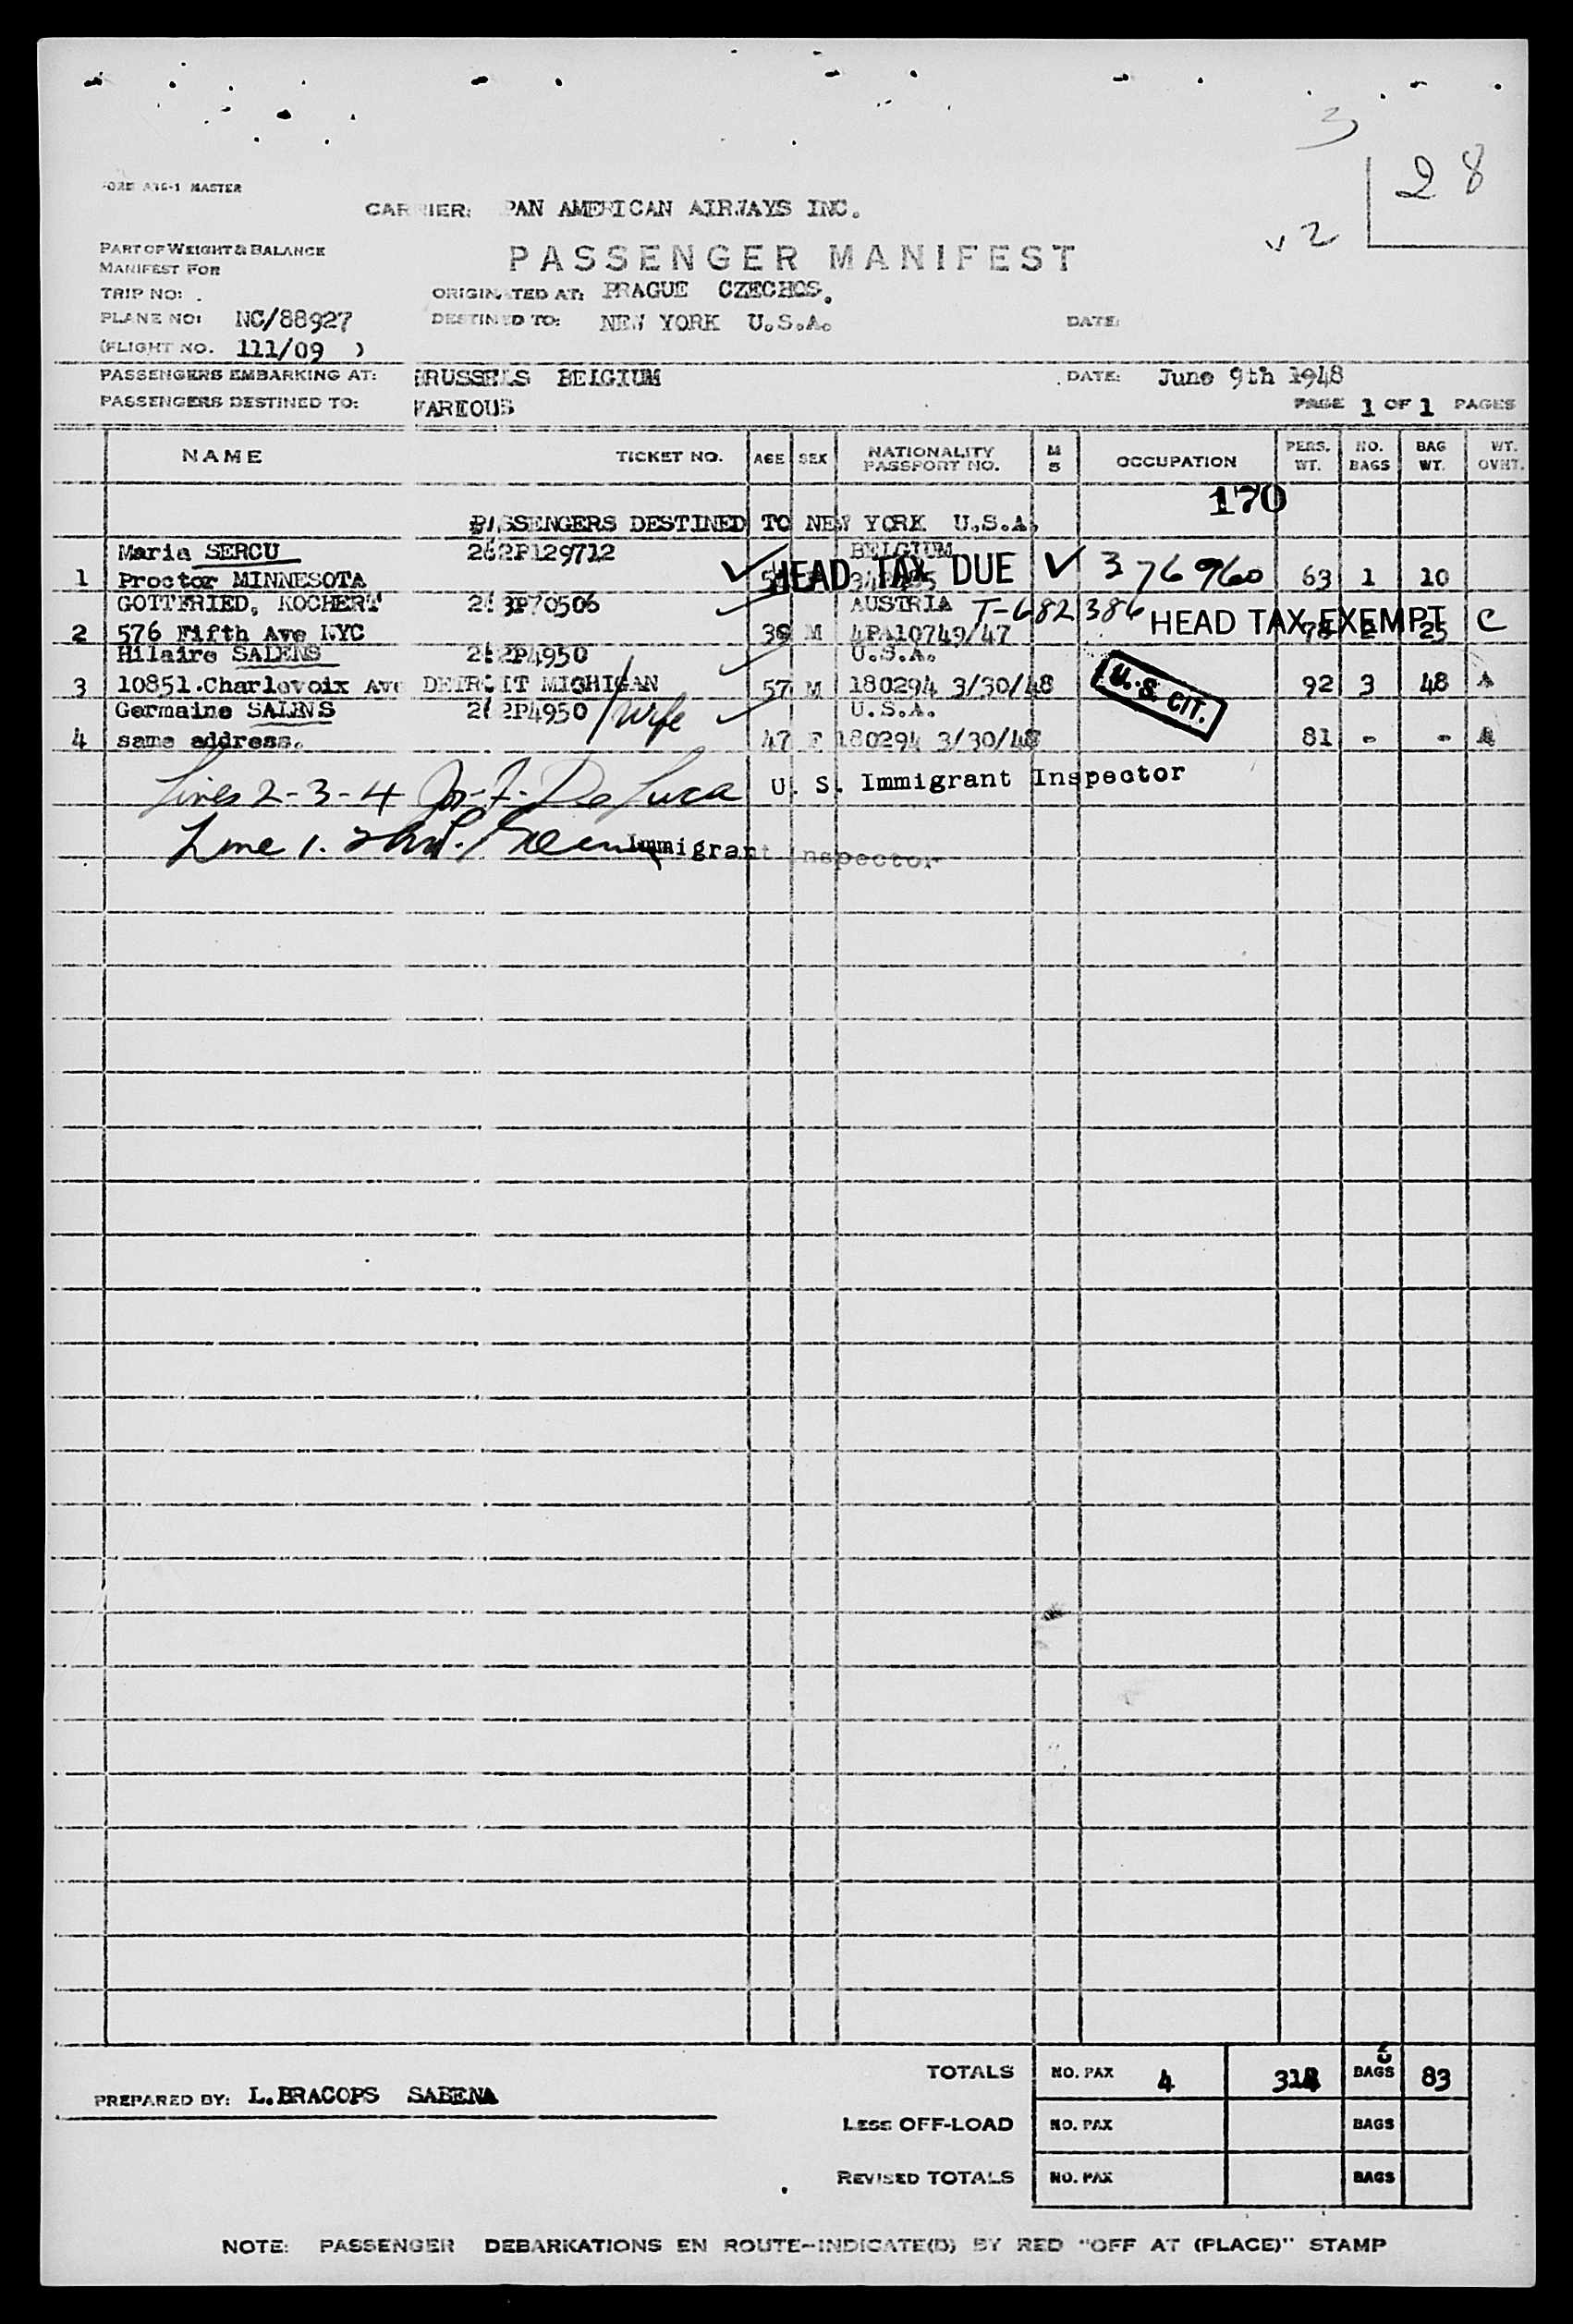 3
28
v 2
FORM A36-1 MASTER
CARRIER: PAN AMERICAN AIRWAYS INC.
PART OF WEIGHT & BALANCE
MANIFEST FOR
PASSENGER MANIFEST
TRIP NO: .
ORIGINATED AT: PRAGUE CZECHOS.
PLANE NO: NC/88927
DESTINED TO: NEW YORK U.S.A.
DATE:
(FLIGHT NO. 111/09 )
PASSENGERS EMBARKING AT: BRUSSELS BELGIUM
DATE: June 9th 1948
PASSENGERS DESTINED TO: VARIOUS
PAGE 1 OF 1 PAGES
NAME TICKET NO. AGE SEX NATIONALITY PASSPORT NO. M S OCCUPATION PERS. WT. NO. BAGS BAG WT. WT. OVHT.
170
PASSENGERS DESTINED TO NEW YORK U.S.A.
Maria SERCU 262P129712 BELGIUM
1 Proctor MINNESOTA HEAD TAX DUE 376960 63 1 10
GOTTFRIED, KOCHERT 263P70506 AUSTRIA T-682386
2 576 Fifth Ave NYC 39 M 4PA10749/47 HEAD TAX EXEMPT 25 C
Hilaire SALENS 262P4950 U.S.A.
3 10851.Charlevoix Ave DETROIT MICHIGAN 57 M 180294 3/30/48 U.S. CIT. 92 3 48 A
Germaine SALENS 262P4950 / Wife U.S.A.
4 same address. 47 F 180294 3/30/48 81 - - A
Lines 2-3-4 Jos. F. De Luca U. S. Immigrant Inspector
Line 1. Immigrant Inspector
TOTALS NO. PAX 4 314 BAGS 83
PREPARED BY: L.BRACOPS SABENA
LESS OFF-LOAD NO. PAX BAGS
REVISED TOTALS NO. PAX BAGS
NOTE: PASSENGER DEBARKATIONS EN ROUTE-INDICATE(D) BY RED "OFF AT (PLACE)" STAMP